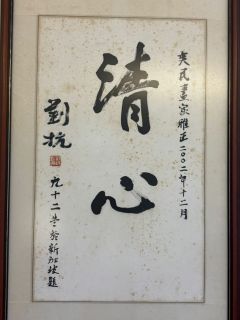 民畫家雅正二〇〇二年十二月
清心
劉抗
九十二於新加坡題